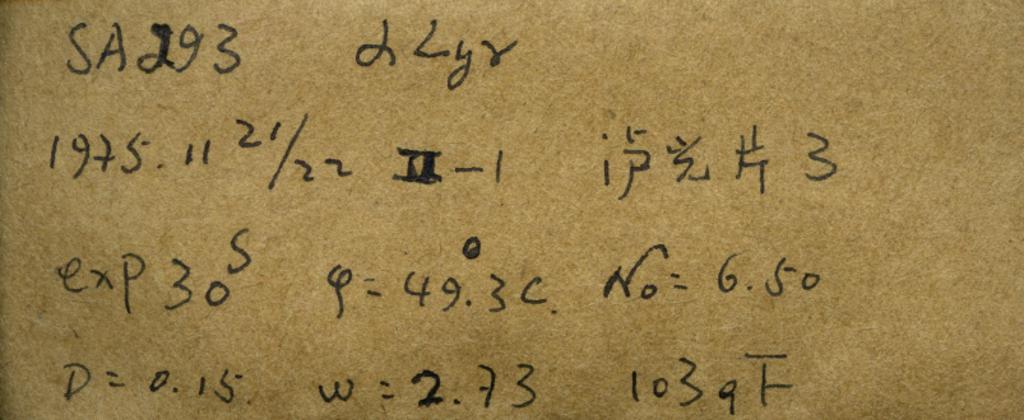 SA293 α Lyr
1975.11 21/22 II-1 沪光片3
exp 30S φ=49.°3C. No=6.50
D=0.15. w=2.73 103aF